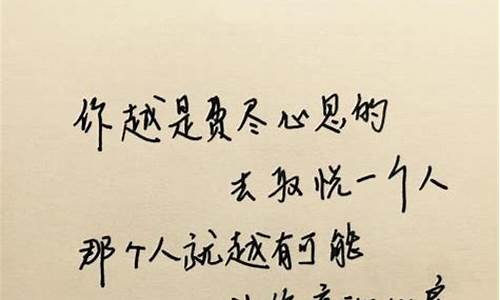 你越是费尽心思的
去取悦一个人
那个人就越有可能